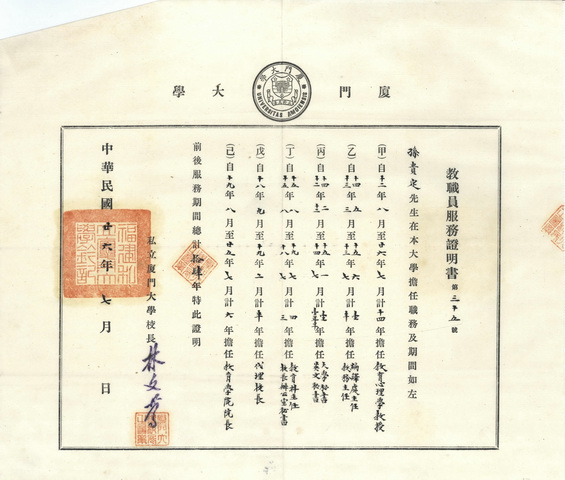 廈門大學
廈門大學
UNIVERSITAS AMOIENSIS
教職員服務證明書 第三十五號
孫貴定先生在本大學擔任職務及期間如左
(甲)自十二年八月至廿六年七月計十四年擔任教育心理學教授
(乙)自年月至年月計年擔任編譯處主任 教務主任
(丙)自年月至年月計年擔任大學秘書 英文秘書
(丁)自年八月至年七月計年擔任教育科主任 校長辦公室秘書
(戊)自十八年九月至十九年二月計半年擔任代理校長
(己)自十九年八月至廿五年七月計六年擔任教育學院院長
前後服務期間總計拾肆年特此證明
私立廈門大學校長 林文慶
中華民國廿六年七月 日